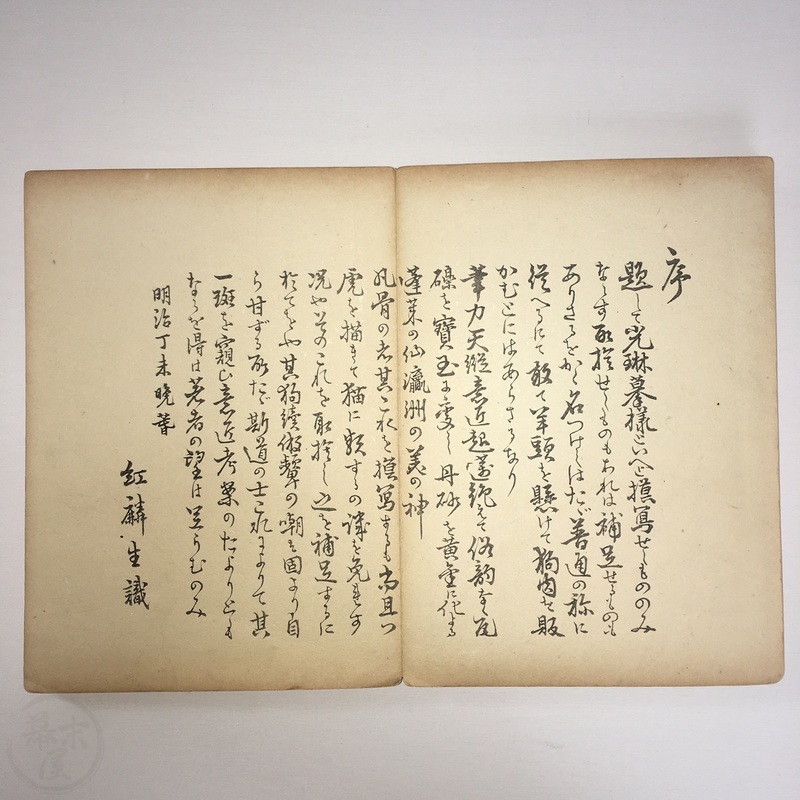 序
題して光琳摹様といへど摸寫せしもののみ
ならす取捨せしものもあれは補足せるものも
ありさるをかく名つけしはたゞ普通の称に
従へるにて敢て羊頭を懸けて狗肉を販
かむとにはあらさるなり
筆力天縱意近超蓬絶えて俗韵なし瓦
礫を寶玉に変し丹砂を黄金に化する
蓬莱の仙瀛洲の美の神
凡骨の者其これを摸寫するも尚且つ
虎を描きて猫に類するの譏を免れす
况や其のこれを取捨し之を補足するに
於てをや其狗續倣顰の嘲は固より自
ら甘ずる所たゞ斯道の士これによりて其
一斑を窺ひ意近考案のたよりとも
なるを得は著者の望は足らむのみ
明治丁未晩春
紅麟生識